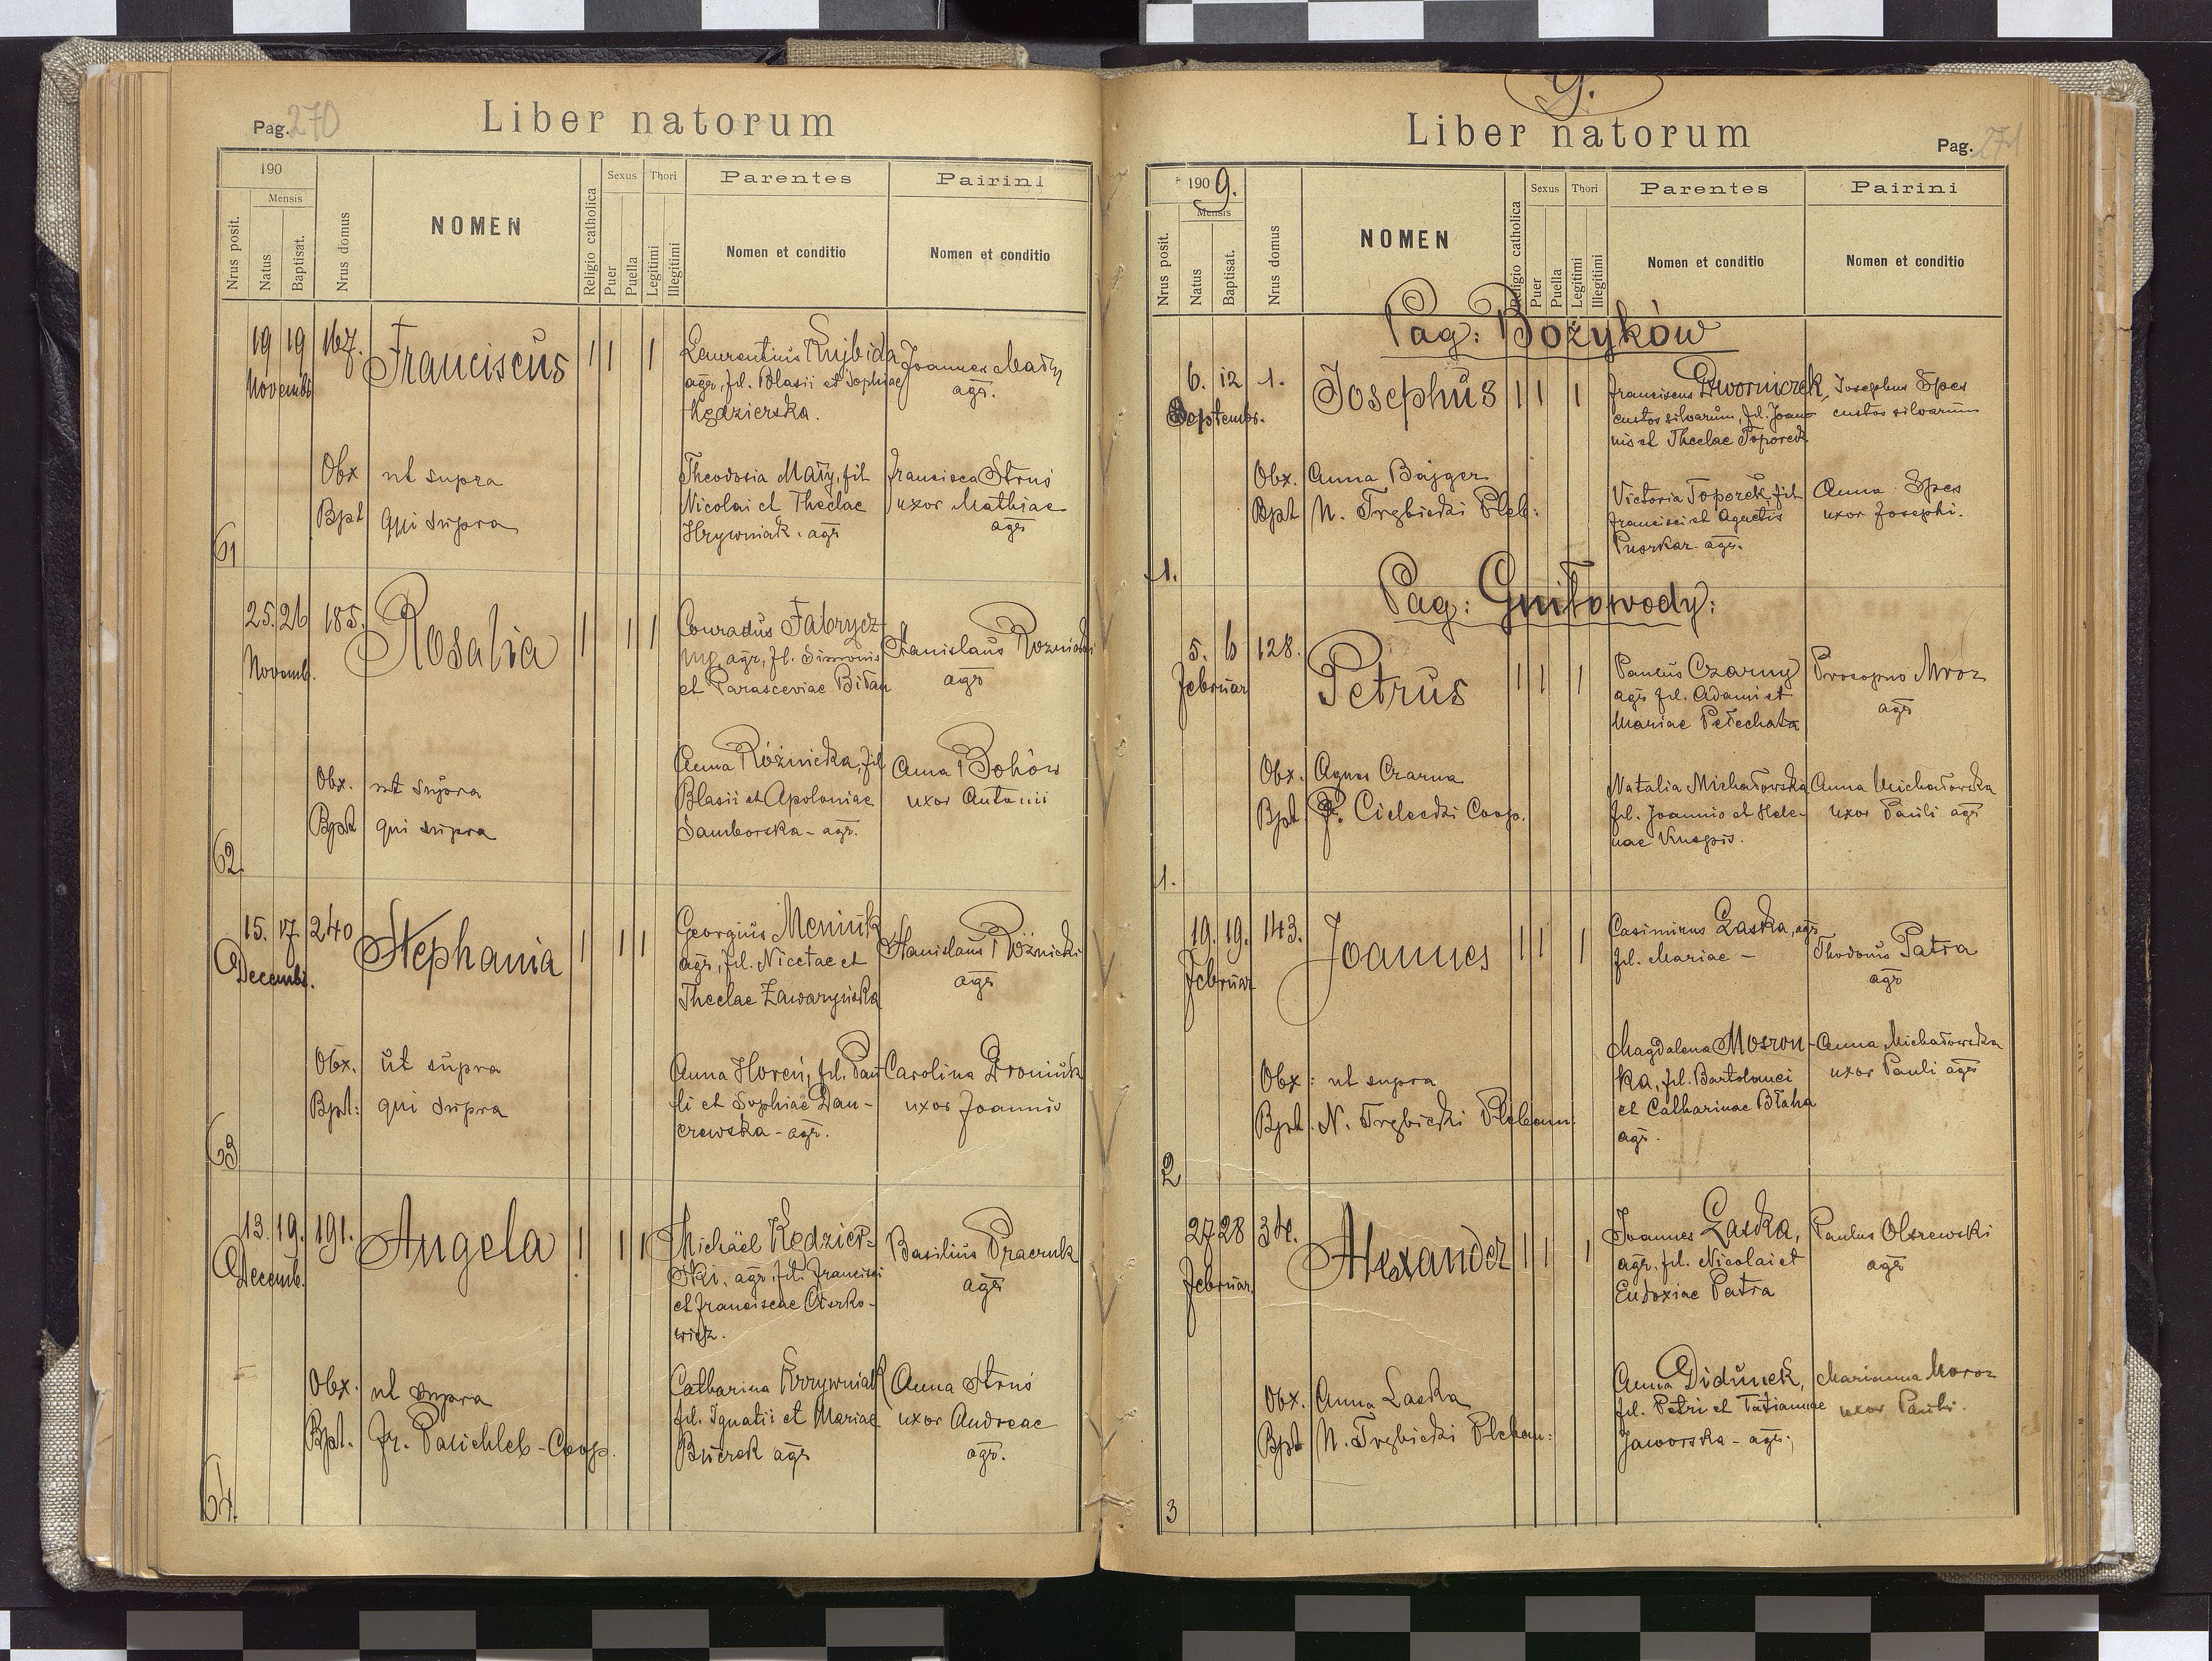 Pag. 270
Liber natorum
190
Mensis
Nrus posit.
Natus
Baptisat.
Nrus domus
NOMEN
Religio catholica
Sexus
Puer
Puella
Thori
Legitimi
Illegitimi
Parentes
Nomen et conditio
Pairini
Nomen et conditio
61
19 19 167.
Novembr
Franciscus
1 1 1
Laurentius Kujbida
agr, fil. Blasii et Sophiae
Kędzierska.
Joannes Mały
agr.
Obx ut supra
Bpt qui supra
Theodosia Mały, fil
Nicolai et Theclae
Hrywniak. agr
Francisca Struś
uxor Mathiae
agr
62
25. 26 185.
Novemb.
Rosalia
1 1 1
Conradus Fabrycz
ny, agr, fil. Simonis
et Parasceviae Biłan
Stanislaus Roznicki
agr
Obx. ut supra
Bpt qui supra
Anna Róźnicka, fil
Blasii et Apoloniae
Samborska - agr.
Anna Bohów
uxor Antonii
63
15. 17 240
Decembr.
Stephania
1 1 1
Georgius Meniuk
agr, fil. Nicetae et
Theclae Zawaryńska
Stanislaus Róźnicki
agr
Obx. ut supra
Bpt: qui supra
Anna Horeń, fil. Pau
li et Sophiae Dan-
czewska - agr.
Carolina Broniuk
uxor Joannis
64.
13. 19. 191.
Decemb.
Angela
1 1 1
Michaël Kędzier-
ski, agr, fil. Francisci
et Franciscae
Basilius Praczuk
agr
Obx. ut supra
Bpt. Fr. Pasichleb - Coop.
Catharina Krzywniak
fil. Ignatii et Mariae
agr
Anna Struś
uxor Andreae
agr.
9.
Liber natorum
Pag. 271
1909.
Mensis
Nrus posit.
Natus
Baptisat.
Nrus domus
NOMEN
Religio catholica
Sexus
Puer
Puella
Thori
Legitimi
Illegitimi
Parentes
Nomen et conditio
Pairini
Nomen et conditio
Pag: Bożyków
1.
6. 12 1.
Septembr.
Josephus
1 1 1
Franciscus Dworniczek,
custos silvarum, fil. Joan-
nis et Theclae Toporek
Josephus Spes
custos silvarum
Obx. Anna Bajger
Bpt N. Trzbicki Pleb:
Victoria Toporek, fil
Francisci et Agnetis
agr.
Anna Spes
uxor Josephi.
Pag: Gniłowody:
1.
5. 6 128.
Februar
Petrus
1 1 1
Paulus Czarny
agr fil. Adami et
Mariae Pełechata
Procopus Mroz
agr
Obx. Agnes Czarna
Bpt Cielecki Coop.
Natalia Michałowska
fil. Joannis et Hele-
nae
Anna Michałowska
uxor Pauli agr
2
19. 19. 143.
Februar
Joannes
1 1 1
Casimirus Laska, agr
fil. Mariae -
Thodorus Patra
agr
Obx: ut supra
Bpt. N. Trzbicki Pleban.
Magdalena Moszon-
ka, fil. Bartolomei
et Catharinae Błaha
agr.
Anna Michałowska
uxor Pauli agr
3
27 28 34.
Februar.
Alexander
1 1 1
Joannes Laska,
agr. fil. Nicolai et
Eudoxiae Patra
Paulus Olszewski
agr
Obx. Anna Laska
Bpt N. Trzbicki Pleban:
Anna Didunek,
fil. Petri et Tatiannae
Jaworska - agr.
Marianna Moroz
uxor Pauli.